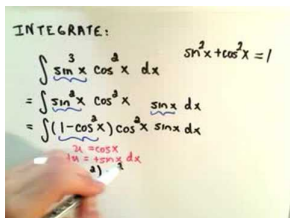 INTEGRATE:
sin²x+cos²x=1
∫ sin³x cos²x dx
= ∫ sin²x cos²x sinx dx
= ∫(1-cos²x)cos²x sinx dx
u = cosx